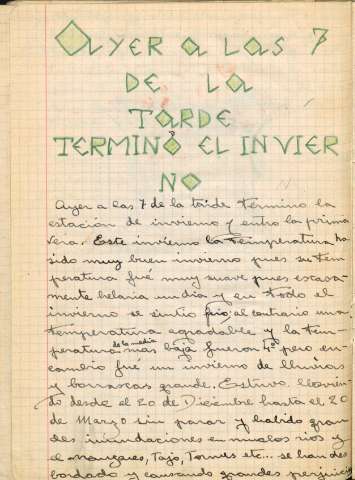 AYER A LAS 7
DE LA
TARDE
TERMINÓ EL INVIER
NO
Ayer a las 7 de la tarde termino la
estación de invierno y entro la prima
vera. Este invierno la temperatura ha
sido muy buen invierno pues su tem-
peratura fué muy suave pues escasa-
mente helaria un dia y en todo el
invierno se sintio frio, al contrario una
temperatura agradable y la tem-
peratura de la media mas baja fueron 4º pero en
cambio fue un invierno de lluvias
y borrascas grande. Estuvo lloviendo
desde el 20 de Diciembre hasta el 20
de Marzo sin parar y habido gran
des inundaciones en muchos rios y
el Manzanares, Tajo, Tormes etc... se han des
bordado y causando grandes perjuicio